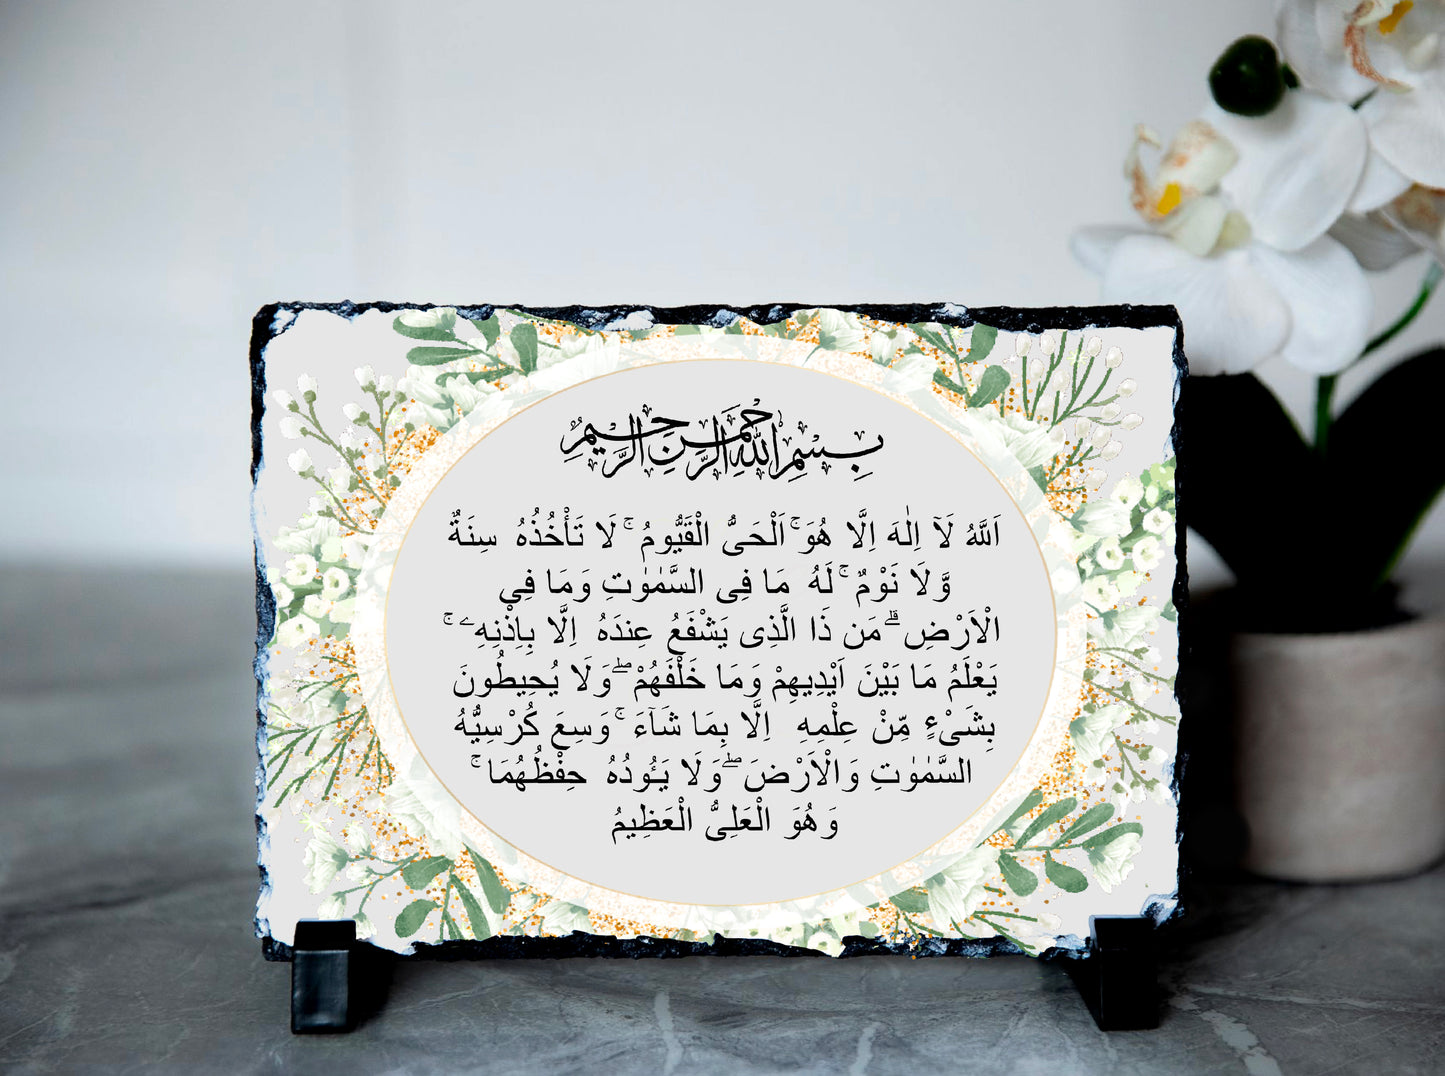 بِسْمِ اللهِ الرَّحْمٰنِ الرَّحِيْمِ
اَللّٰهُ لَآ اِلٰهَ اِلَّا هُوَ ۚ اَلْحَىُّ الْقَيُّومُ ۚ لَا تَأْخُذُهُ سِنَةٌ
وَّلَا نَوْمٌ ۚ لَهُ مَا فِى السَّمٰوٰتِ وَمَا فِى
الْاَرْضِ ۗ مَن ذَا الَّذِى يَشْفَعُ عِندَهُ اِلَّا بِاِذْنِهِ ے ۚ
يَعْلَمُ مَا بَيْنَ اَيْدِيهِمْ وَمَا خَلْفَهُمْ ۖ وَلَا يُحِيطُونَ
بِشَىْءٍ مِّنْ عِلْمِهِ اِلَّا بِمَا شَآءَ ۚ وَسِعَ كُرْسِيُّهُ
السَّمٰوٰتِ وَالْاَرْضَ ۖ وَلَا يَـُٔودُهُ حِفْظُهُمَا ۚ
وَهُوَ الْعَلِىُّ الْعَظِيمُ